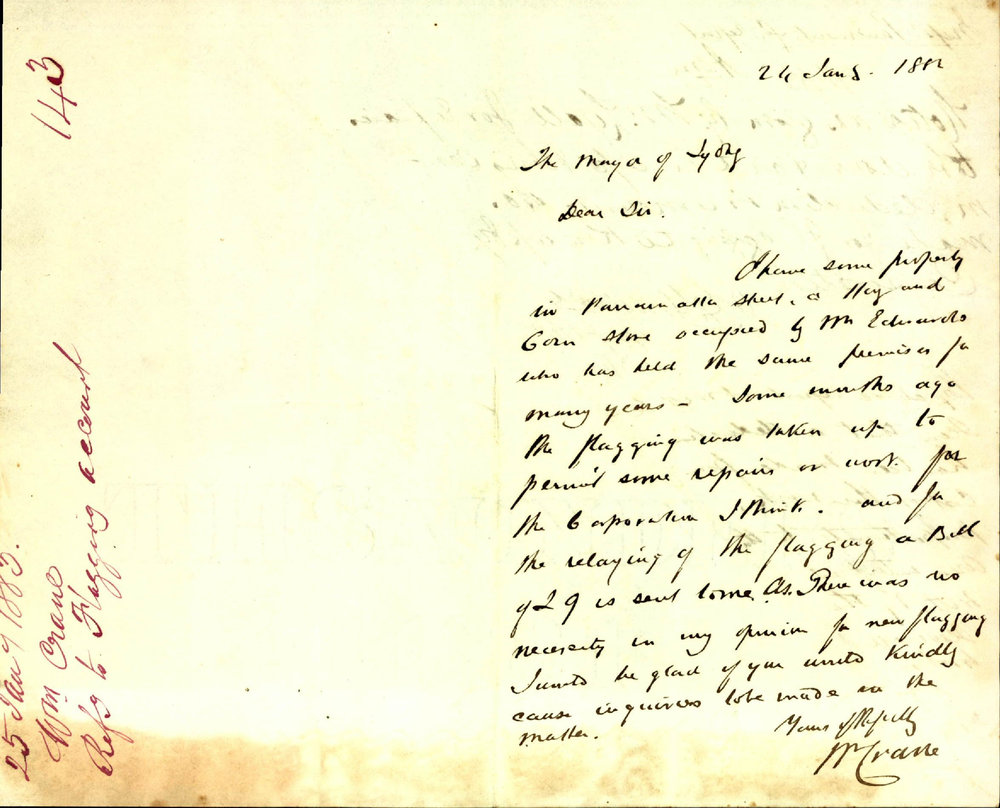 143
25 Jany 1883.
Wm Crane
Refg to Flagging account
24 Jany. 188
The Mayor of Sydny
Dear Sir.
I have some property
in Parramatta street, a Hay and
Corn store occupied by Mr Edwards
who has held the same premises for
many years - Some months ago
the flagging was taken up to
permit some repairs or work for
the Corporation I think. and for
the relaying of the flagging a Bill
of £9 is sent to me. As There was no
necessity in my opinion for new flagging
I would be glad if you would kindly
cause inquiries to be made in the
matter.
Yours
Wm Crane